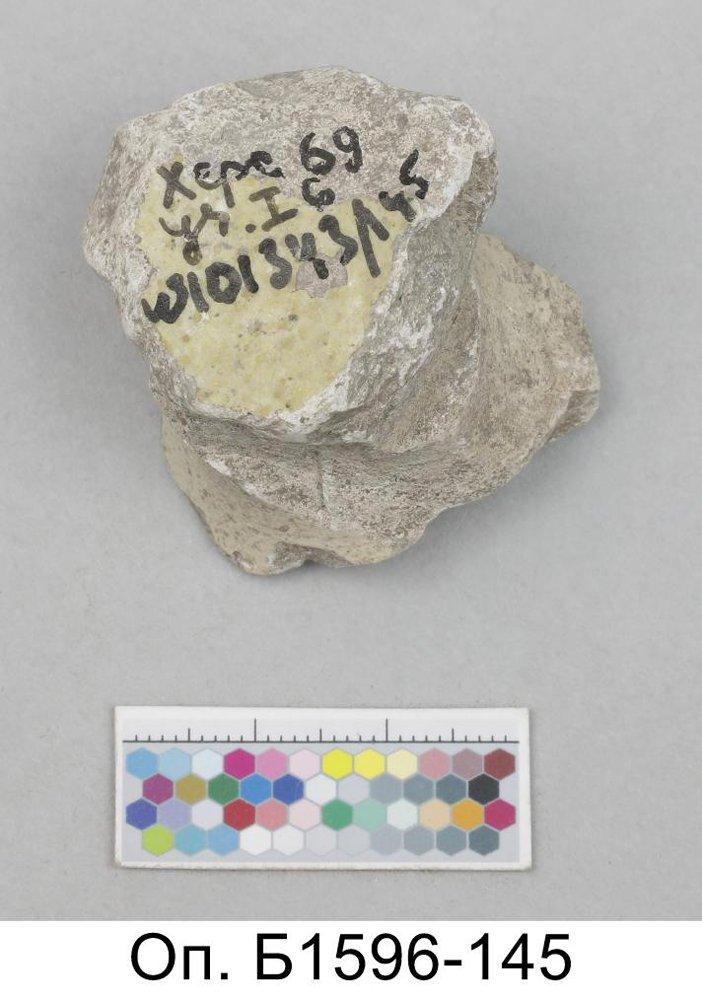 Херс 69
уч. I б
w101343/145
Оп. Б1596-145